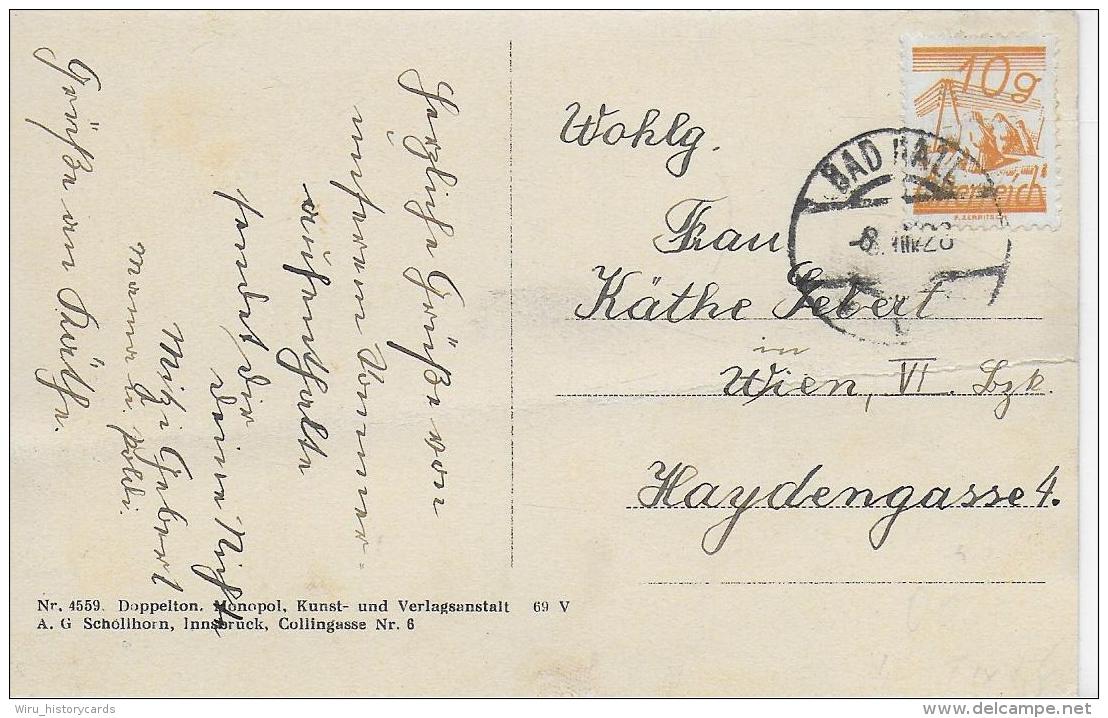 Herzliche Grüße von
unserem Sommer-
aufenthalte
sendet dir
deine Nichte
Mitzi Gebert
Mama u. Poldi.
Grüße an Käthe.
10g
Österreich
BAD HALL
-8. VIII. 28
Wohlg.
Frau
Käthe Gebert
in
Wien, VI. Bzk.
Haydengasse 4.
Nr. 4559. Doppelton. Monopol, Kunst- und Verlagsanstalt 69 V
A. G Schöllhorn, Innsbruck, Collingasse Nr. 6
Wiru_historycards
www.delcampe.net